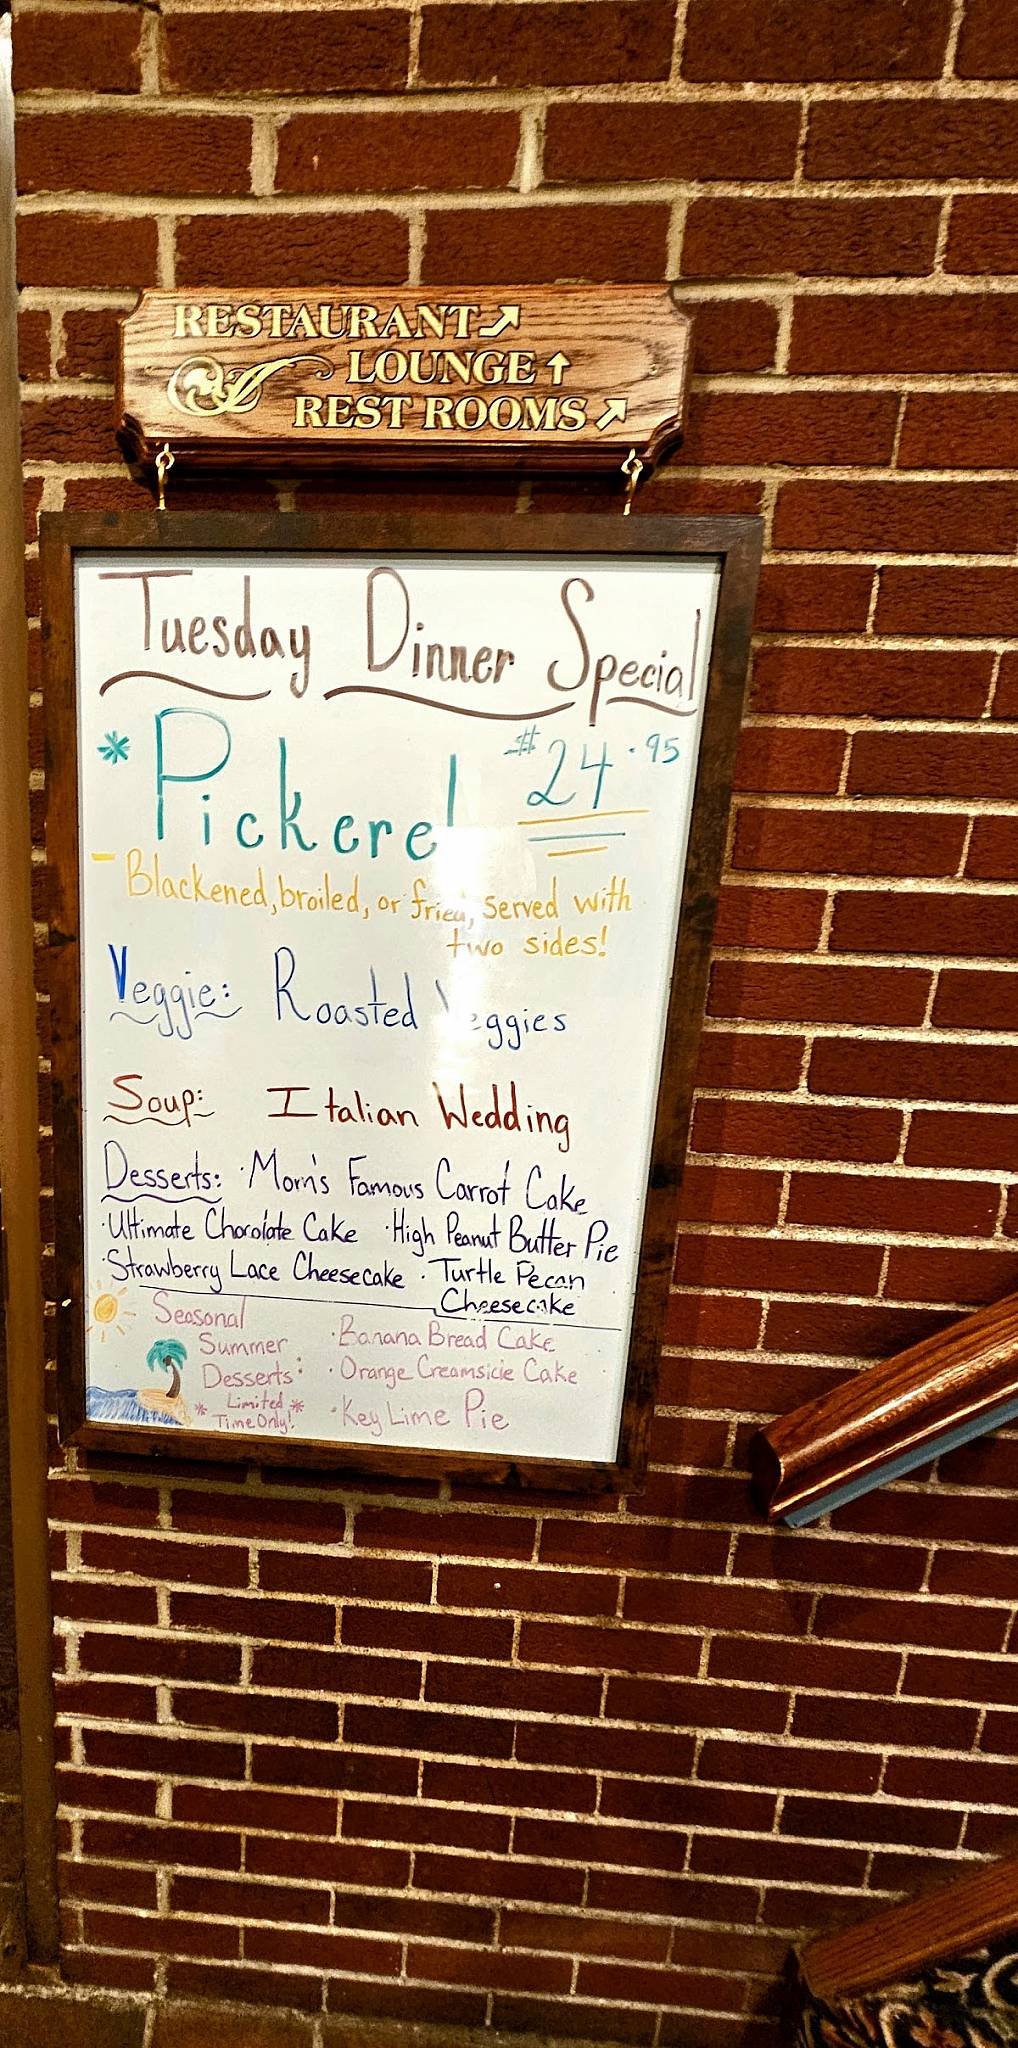 RESTAURANT↗
LOUNGE↑
REST ROOMS↗
Tuesday Dinner Special
* Pickerel $24.95
- Blackened, broiled, or fried, served with
two sides!
Veggie: Roasted Veggies
Soup: Italian Wedding
Desserts: · Mom's Famous Carrot Cake
· Ultimate Chocolate Cake · High Peanut Butter Pie
· Strawberry Lace Cheesecake · Turtle Pecan
Cheesecake
Seasonal
Summer
Desserts:
* Limited *
Time Only!
· Banana Bread Cake
· Orange Creamsicle Cake
· Key Lime Pie